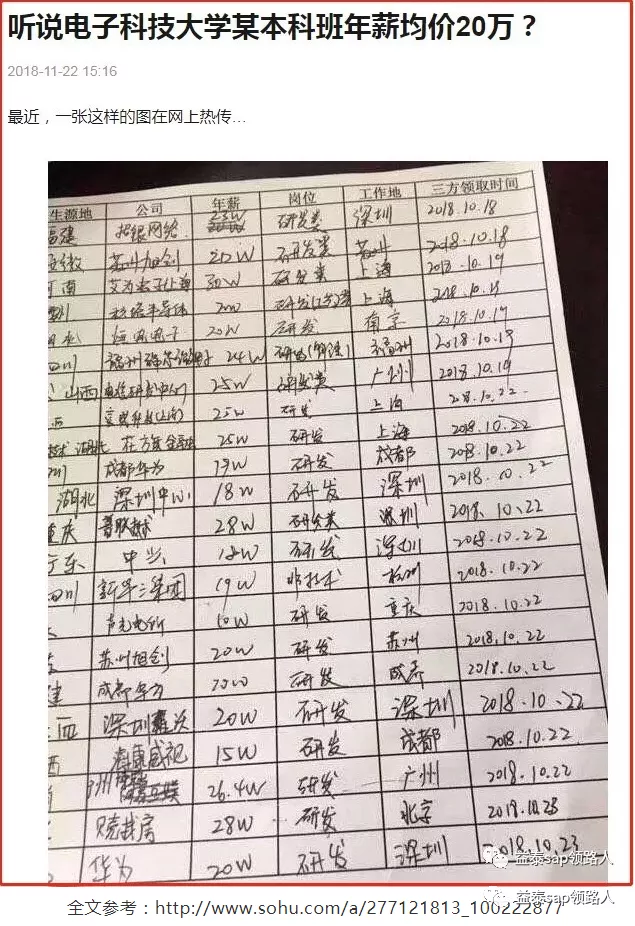 听说电子科技大学某本科班年薪均价20万？
2018-11-22 15:16
最近，一张这样的图在网上热传...
生源地 公司 年薪 岗位 工作地 三方领取时间
福建 招银网络 23W 研发类 深圳 2018.10.18
安徽 苏州旭创 20W 研发类 苏州 2018.10.18
河南 30W 研发类 上海 2018.10.19
半导体 上海
20W 研发 南京 2018.10.19
四川 福州 24W 研发(算法) 福州 2018.10.19
山西 25W 研发类 广州 2018.10.19
西 25W 研发 上海 2018.10.22
湖北 25W 研发 上海 2018.10.22
川 成都华为 19W 研发 成都 2018.10.22
湖北 深圳中心 18W 研发 深圳 2018.10.22
重庆 普联技术 28W 研发类 深圳 2018.10.22
广东 中兴 18W 研发 深圳 2018.10.22
四川 新华三集团 19W 技术 杭州 2018.10.22
声光电所 10W 研发 重庆 2018.10.22
苏州旭创 20W 研发 苏州 2018.10.22
建 成都华为 20W 研发 成都 2018.10.22
西 深圳 20W 研发 深圳 2018.10.22
西 海康威视 15W 研发 成都 2018.10.22
26.4W 研发 广州 2018.10.22
贝壳找房 28W 研发 北京 2018.10.23
华为 20W 研发 深圳 2018.10.23
益泰sap领路人
益泰sap领路人
全文参考：http://www.sohu.com/a/277121813_100222877